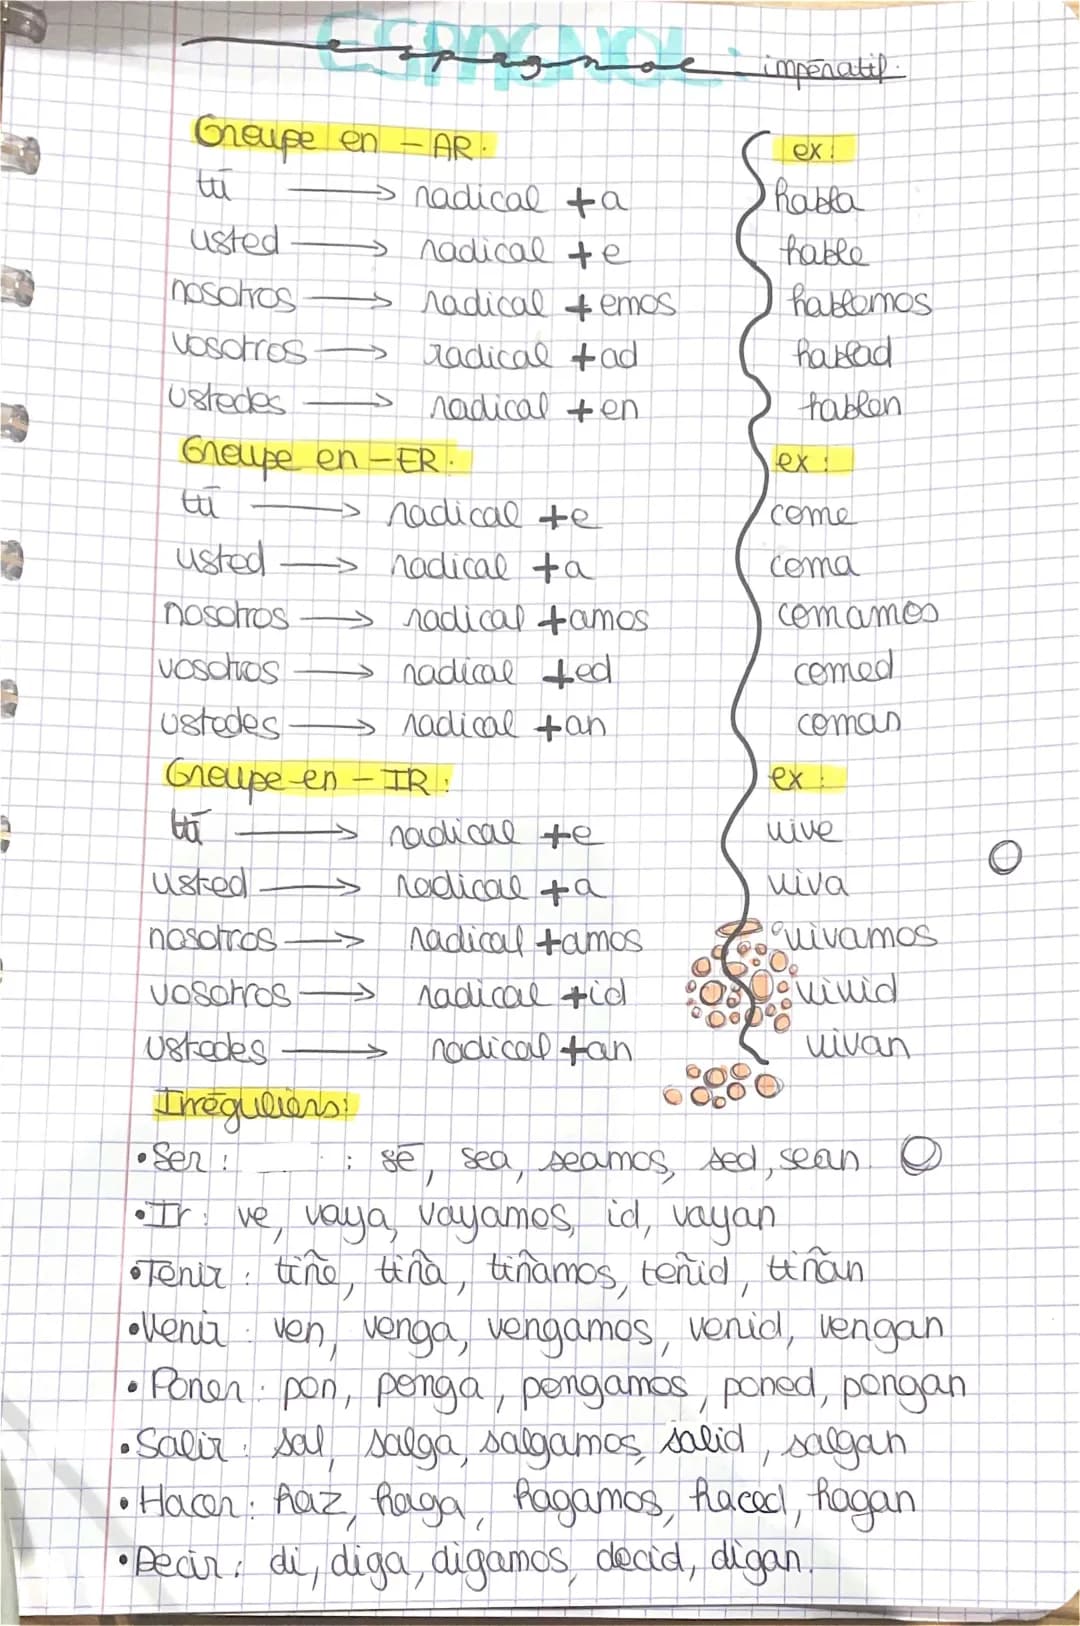 ESPAGNOL :
espagnol impératif.
Groupe en - AR. ex :
tú → radical + a habla
usted → radical + e hable
nosotros → radical + emos hablemos
vosotros → radical + ad hablad
ustedes → radical + en hablen
Groupe en - ER. ex :
tú → radical + e come
usted → radical + a coma
nosotros → radical + amos comamos
vosotros → radical + ed comed
ustedes → radical + an coman
Groupe en - IR : ex :
tú → radical + e vive
usted → radical + a viva
nosotros → radical + amos vivamos
vosotros → radical + id vivid
ustedes → radical + an vivan
Irréguliers :
• Ser : : sé, sea, seamos, sed, sean.
• Ir : ve, vaya, vayamos, id, vayan
• Tenir : tiñe, tiña, tiñamos, teñid, tiñan
• Venir : ven, venga, vengamos, venid, vengan
• Poner : pon, ponga, pongamos, poned, pongan
• Salir : sal, salga, salgamos, salid, salgan
• Hacer : haz, haga, hagamos, haced, hagan
• Decir : di, diga, digamos, decid, digan.